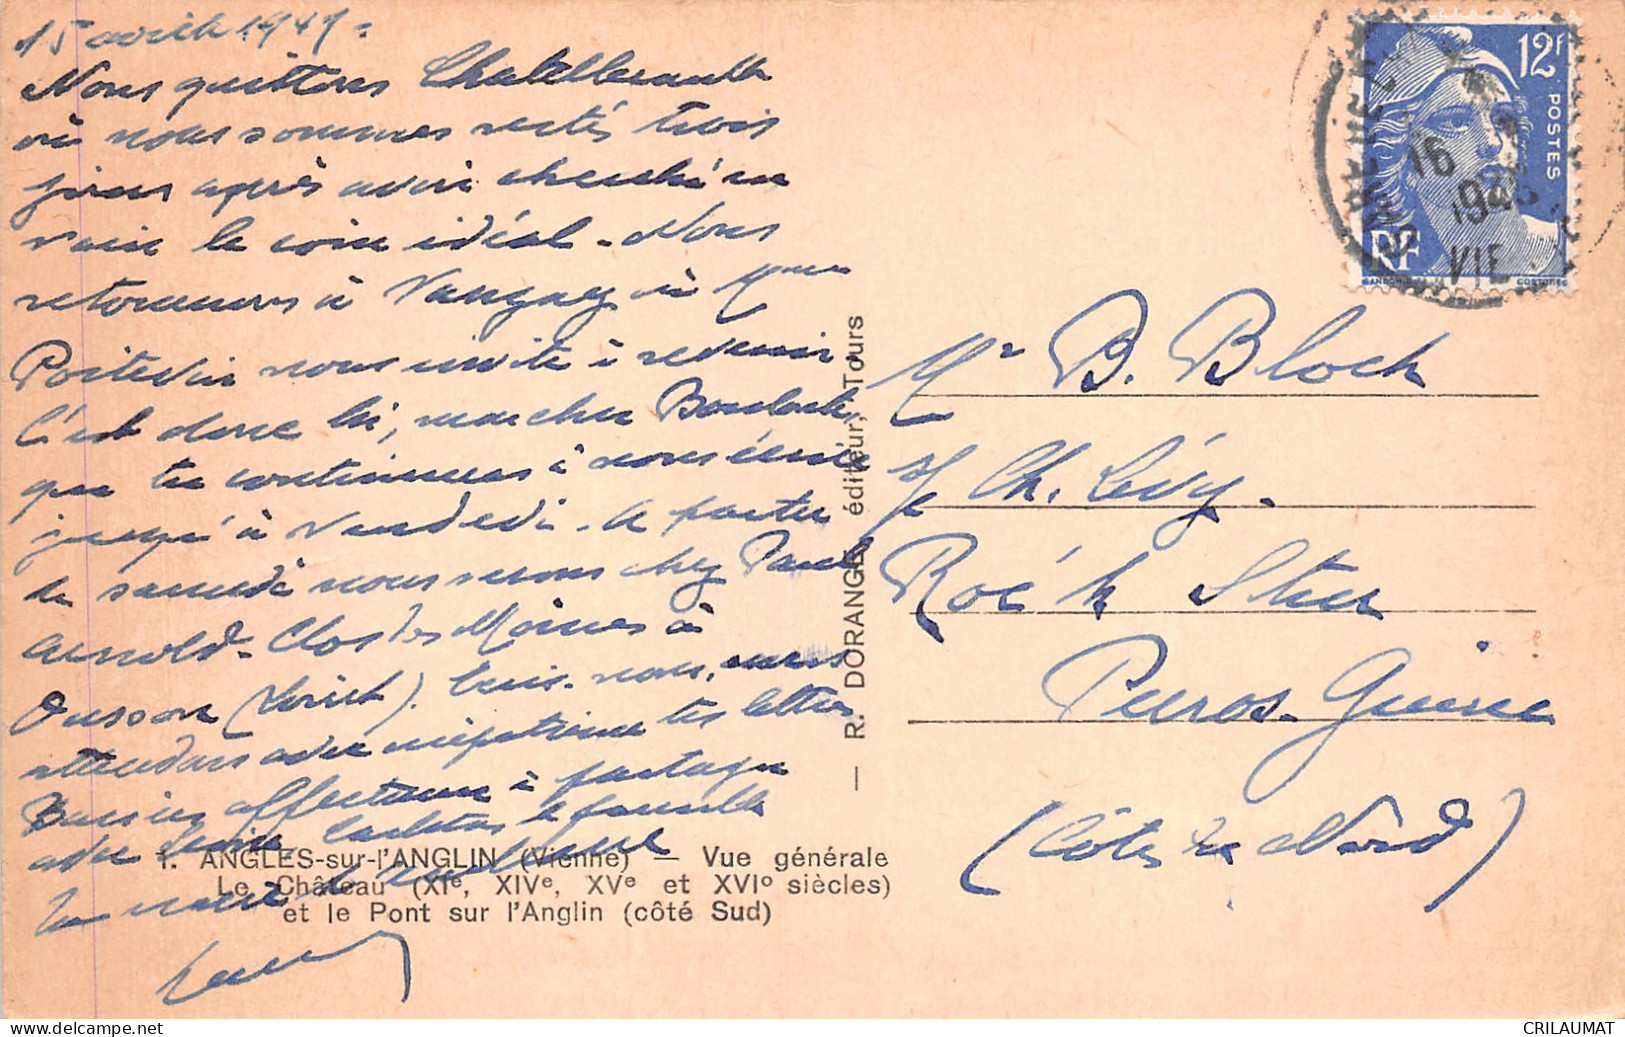 15 avril 1949.
Nous quittons Chatellerault
où nous sommes restés trois
jours après avoir cherché en
vain le coin idéal. Nous
retournons à Vangay où Mme
Poitevin nous invite à revenir.
C'est donc là, mon cher
que tu continueras à nous écrire
jusqu'à Vendredi. A partir
de samedi nous serons chez Paul
Arnold. Clos des Moines à
Ousson (Loiret). nous, nous
attendons avec impatience tes lettres
Bons affectueux à partager
avec la famille
Ta
12F
POSTES
RF
16
194
VIE
GANDON
CORTOT
Mr B. Bloch
s/c Ch. Lévy.
Roc'h
Perros-Guirec
(Côtes du Nord)
— R. DORANGE, éditeur, Tours
1. ANGLES-sur-l'ANGLIN (Vienne) — Vue générale
Le Château (XIe, XIVe, XVe et XVIe siècles)
et le Pont sur l'Anglin (côté Sud)
CRILAUMAT